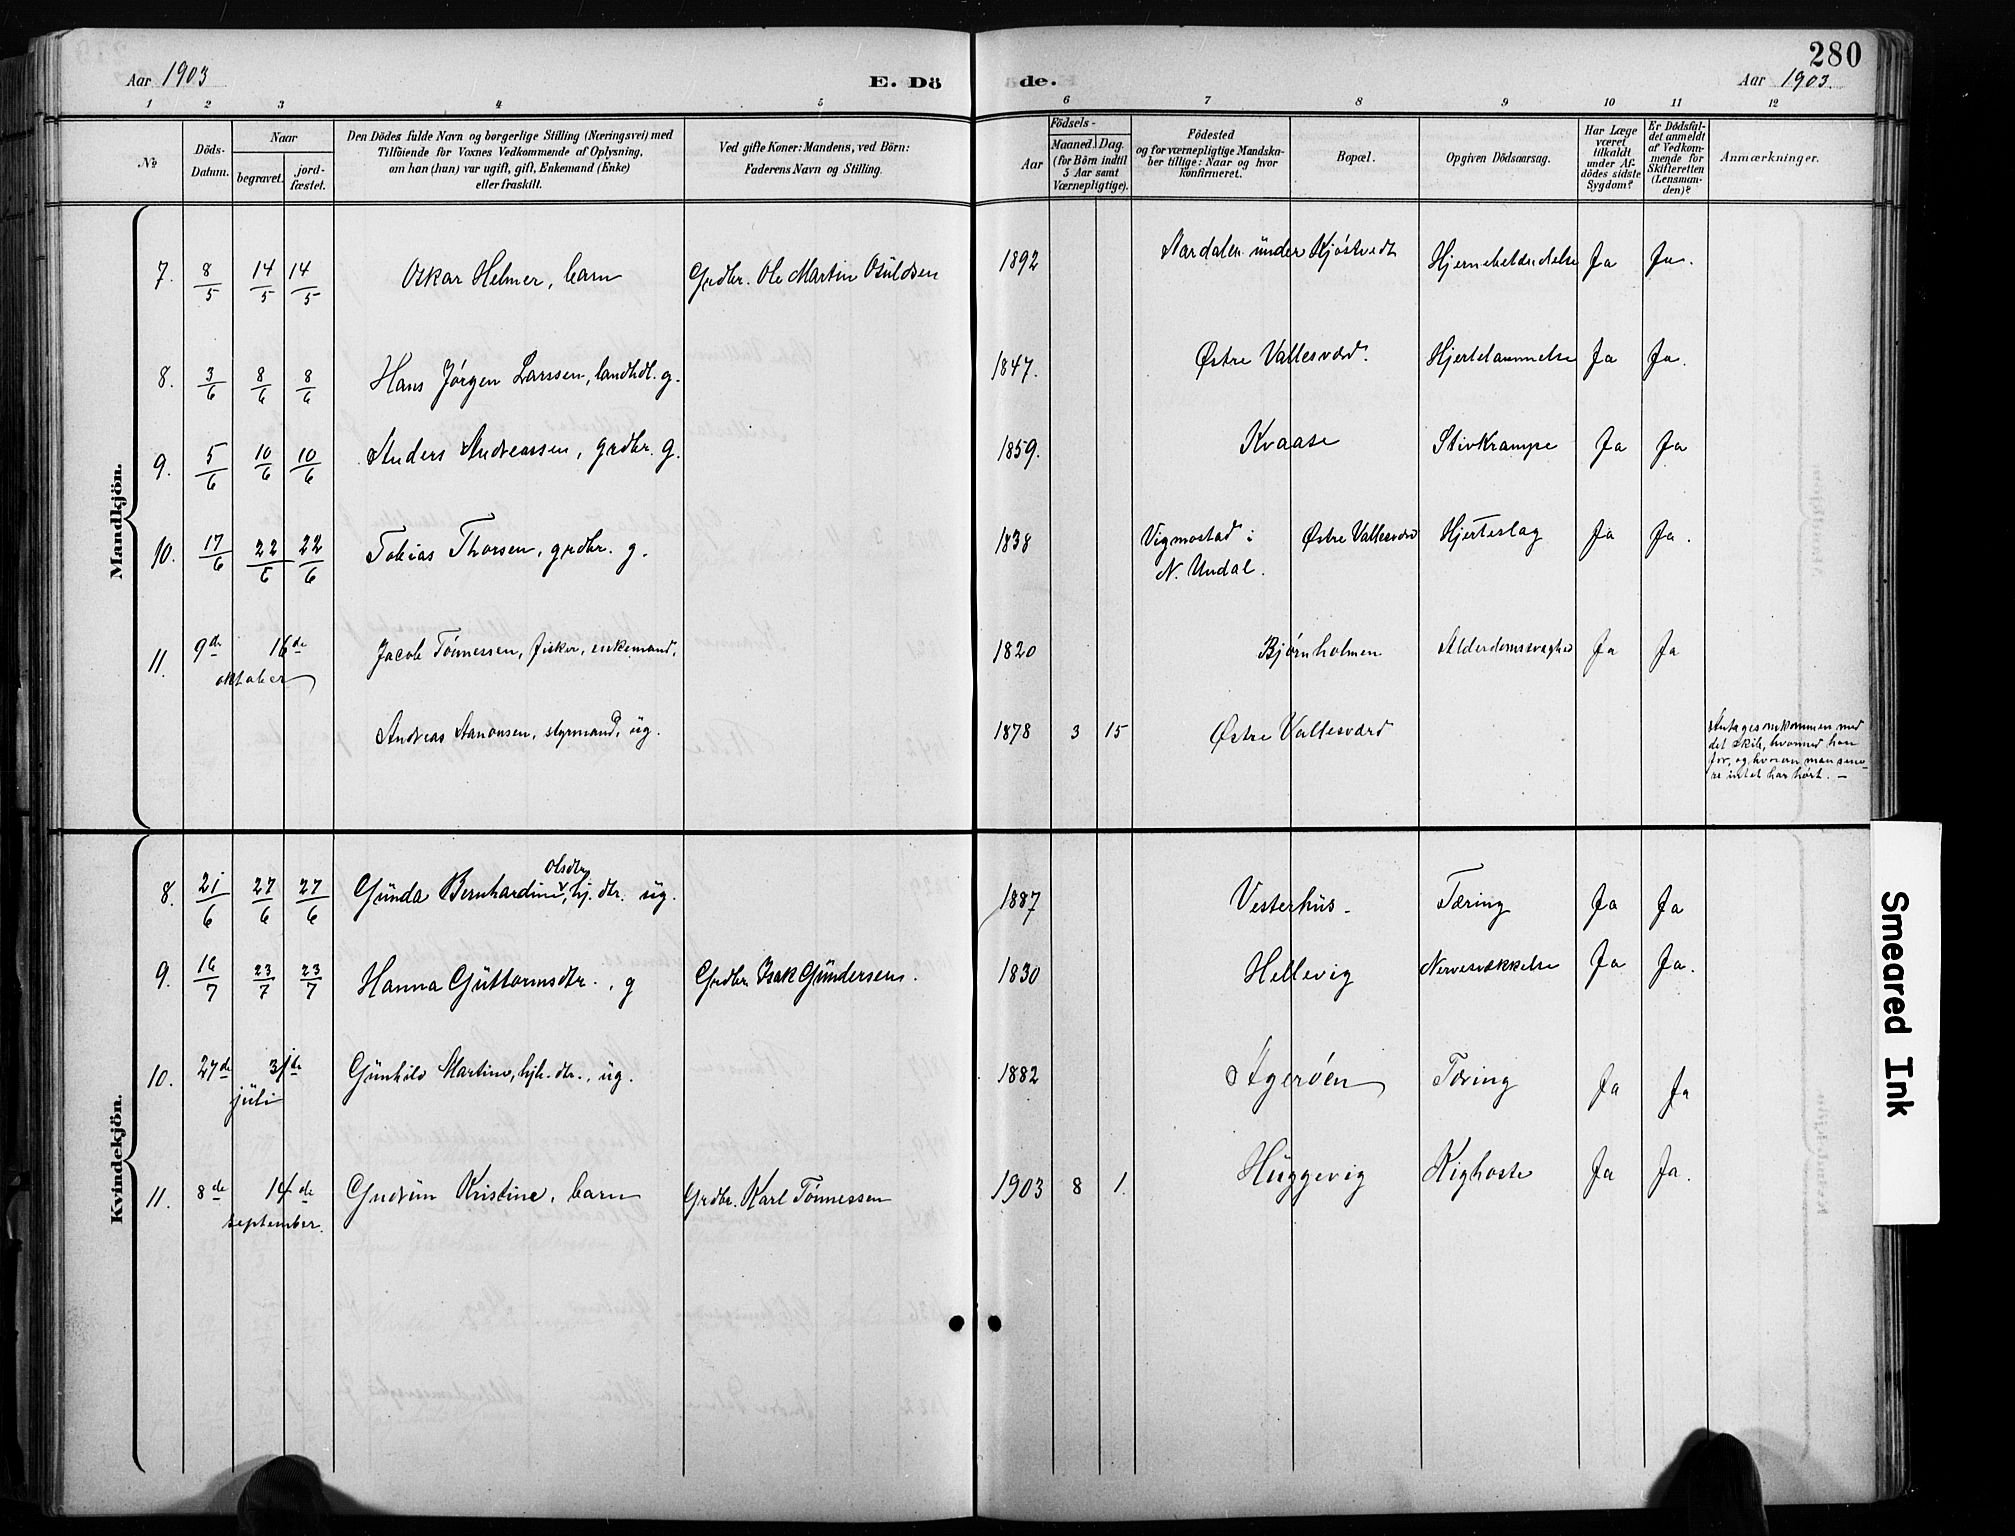 280
Aar 1903 E. Dö de. Aar 1903.
1 2 3 4 5 6 7 8 9 10 11 12
№
Döds-
Datum.
Naar
begravet.
jord-
fæstet.
Den Dödes fulde Navn og borgerlige Stilling (Næringsvei) med
Tilföiende for Voxnes Vedkommende af Oplysning,
om han (hun) var ugift, gift, Enkemand (Enke)
eller fraskilt.
Ved gifte Koner: Mandens, ved Börn:
Faderens Navn og Stilling.
Födsels-
Aar
Maaned. Dag.
(for Börn indtil
5 Aar samt
Værnepligtige).
Födested
og for værnepligtige Mandska-
ber tillige: Naar og hvor
konfirmeret.
Bopæl.
Opgiven Dödsaarsag.
Har Læge
været
tilkaldt
under Af-
dödes sidste
Sygdom?
Er Dödsfal-
det anmeldt
af Vedkom-
mende for
Skifteretten
(Lensman-
den)?
Anmærkninger.
Mandkjön.
7. 8/5 14/5 14/5 Oskar Helmer, barn Grdbr. Ole Martin Osuldsen 1892 Aardalen under Kjøstvedt Hjernebetændelse Ja Ja.
8. 3/6 8/6 8/6 Hans Jørgen Larssen, landhdl. g. 1847. Østre Vallesværd. Hjertelammelse Ja Ja.
9. 5/6 10/6 10/6 Anders Andreassen, grdbr. g. 1859. Kvaase Stivkrampe Ja Ja
10. 17/6 22/6 22/6 Tobias Thorsen, grdbr. g. 1838 Vigmostad i Østre Vallesværd Hjerteslag Ja Ja.
N. Undal.
11. 9de 16de Jacob Tønnessen, fisker, enkemand. 1820 Bjørnholmen Alderdomssvaghed Ja Ja
oktober
Andreas Aanonsen, styrmand, ug. 1878 3 15 Østre Vallesværd
Antages omkommen med
det skib, hvormed han
for, og hvorom man sene-
re intet har hørt. —
Kvindekjön.
Olsdtr
8. 21/6 27/6 27/6 Gunda Bernhardine, hj. dtr. ug. 1887 Vesterhus. Tæring Ja Ja
9. 16/7 23/7 23/7 Hanna Guttormsdtr., g Grdbr. Isak Gundersens. 1830 Hellevig Nervesvækkelse Ja Ja.
10. 27de 31te Gunhild Martine, hjh. dtr., ug. 1882 Agerøen Tæring Ja Ja
juli
11. 8de 14de Gudrun Kristine, barn Grdbr. Karl Tønnessen 1903 8 1. Huggevig Kighoste Ja Ja.
september.
Smeared Ink